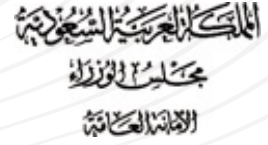 المملكة العربية السعودية
مجلس الوزراء
الأمانة العامة